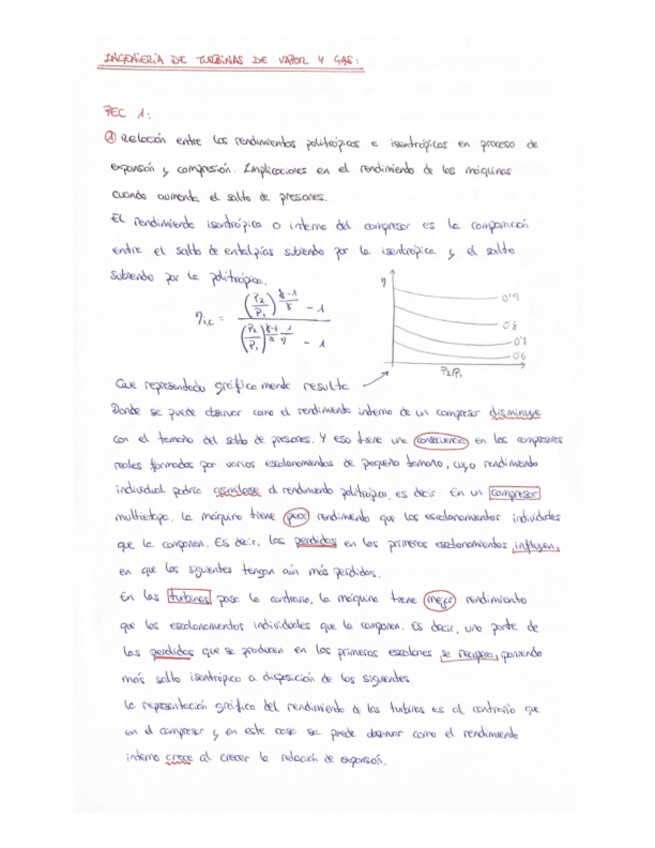 INGENIERÍA DE TURBINAS DE VAPOR Y GAS:
PEC 1:
① Relación entre los rendimientos politrópicos e isentrópicos en proceso de
expansión y compresión. Implicaciones en el rendimiento de las máquinas
cuando aumenta el salto de presiones.
El rendimiento isentrópico o interno del compresor es la comparación
entre el salto de entalpías subiendo por la isentrópica y el salto
subiendo por la politrópica.
η
0'9
0'8
0'7
0'6
P2/P1
ηic = ((P2/P1)^((γ-1)/γ) - 1) / ((P2/P1)^((γ-1)/γ · 1/η) - 1)
Que representado gráficamente resulta
Donde se puede observar como el rendimiento interno de un compresor disminuye
con el tamaño del salto de presiones. Y eso tiene una consecuencia en los compresores
reales formados por varios escalonamientos de pequeño tamaño, cuyo rendimiento
individual podría asimilarse al rendimiento politrópico, es decir: En un compresor
multietapa, la máquina tiene peor rendimiento que los escalonamientos individuales
que la componen. Es decir, las perdidas en los primeros escalonamientos influyen,
en que los siguientes tengan aún más perdidas.
En las turbinas pasa lo contrario, la máquina tiene mejor rendimiento
que los escalonamientos individuales que la componen. Es decir, una parte de
las perdidas que se producen en los primeros escalones se recupera, poniendo
más salto isentrópico a disposición de los siguientes.
La representación gráfica del rendimiento de las turbinas es al contrario que
en el compresor y en este caso se puede observar como el rendimiento
interno crece al crecer la relación de expansión.